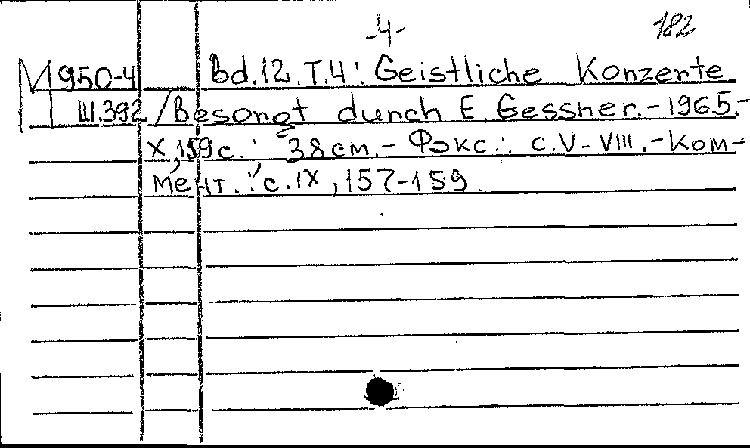 -4-
182
М 950-4 Bd.12. T.4: Geistliche Konzerte
Ш.392 /Besorgt durch E. Gessner.-1965.-
X,159с.: 38см.- Факс.: с.V-VIII.-Ком-
мент.: с.IX,157-159.